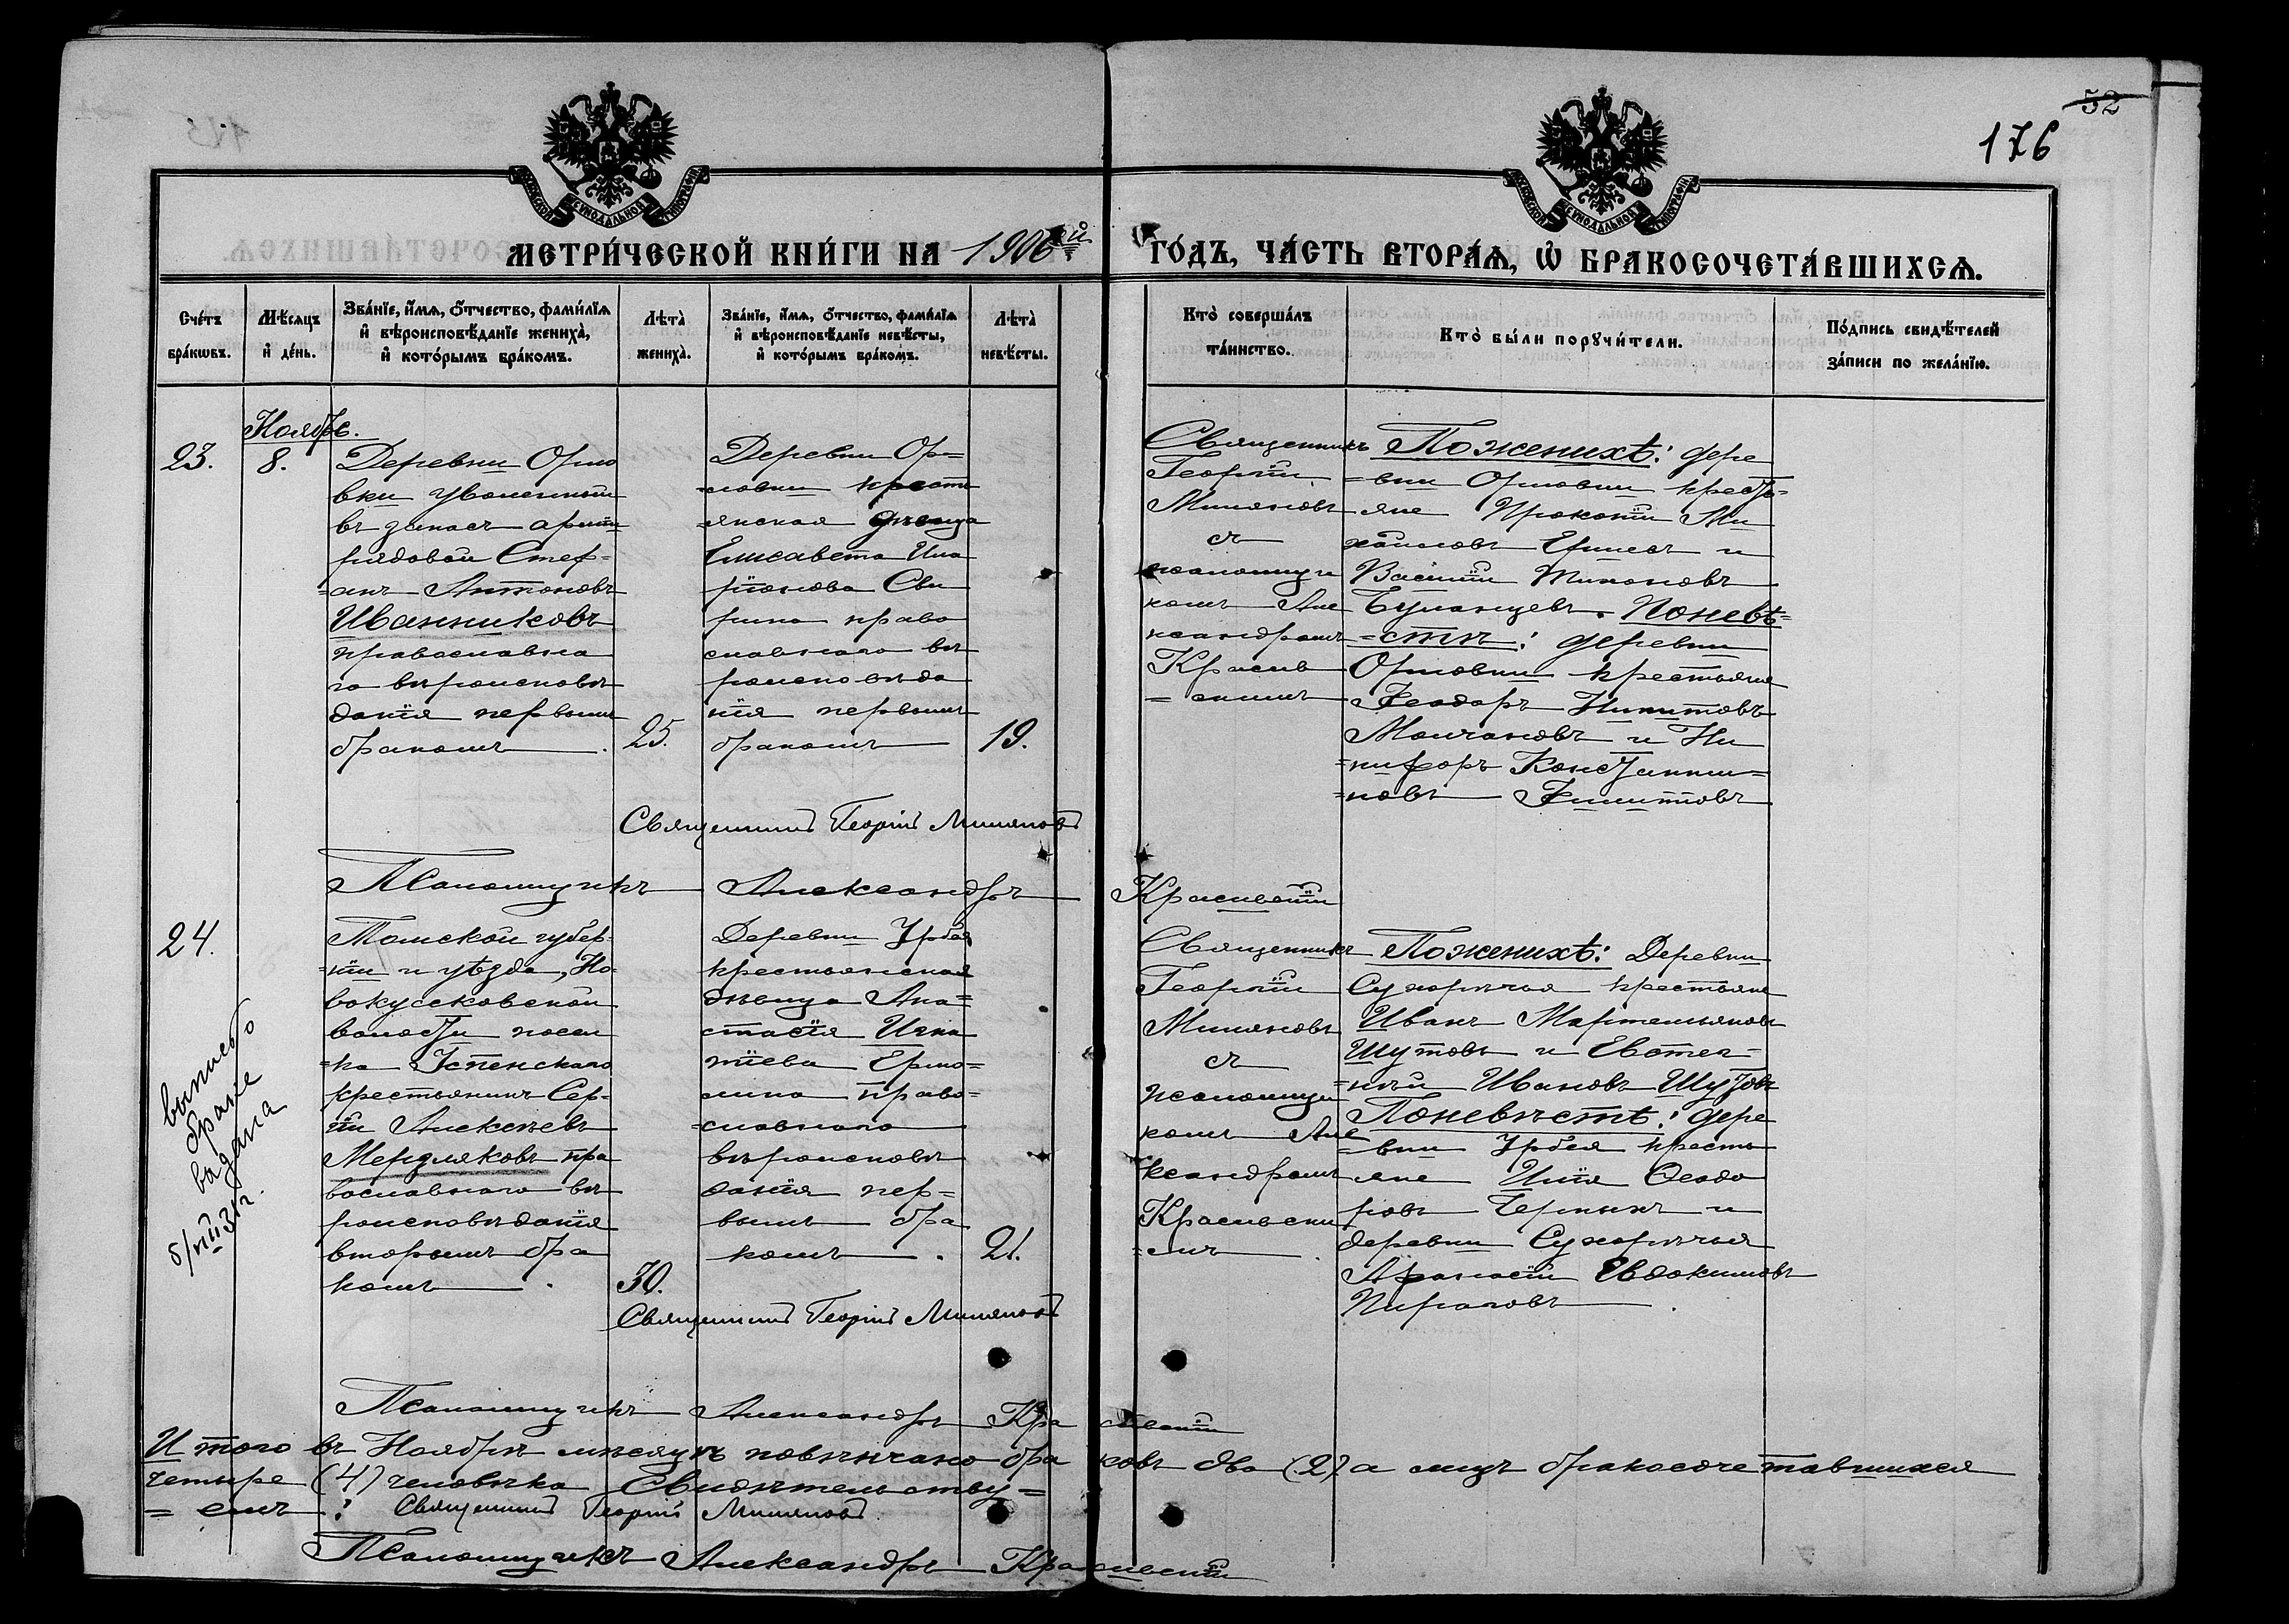 52
176
МОСКОВСКОЙ СѴНОДАЛЬНОЙ ТИПОГРАФІИ
МОСКОВСКОЙ СѴНОДАЛЬНОЙ ТИПОГРАФІИ
МЕТРИ́ЧЕСКОЙ КНИ́ГИ НА 1906ой ГО́ДЪ, ЧА́СТЬ ВТОРА́Ѧ, Ѽ БРАКОСОЧЕТА́ВШИХСѦ.
Сче́тъ бра́кѡвъ.
Мѣ́сяцъ и҆ де́нь.
Зва́нїе, и҆́мѧ, ѻ҆́тчество, фами́лїѧ
и҆ вѣроисповѣ́данїе жениха̀,
и҆ кото́рымъ бра́комъ.
Лѣта̀ жениха̀.
Зва́нїе, и҆́мѧ, ѻ҆́тчество, фами́лїѧ
и҆ вѣроисповѣ́данїе невѣ́сты,
и҆ кото́рымъ бра́комъ.
Лѣта̀ невѣ́сты.
Кто̀ соверша́лъ
та́инство.
Кто̀ бы́ли порꙋчи́тели.
По́дпись свидѣ́телей
за́писи по жела́нїю.
23.
Ноябрь.
8.
Деревни Орло
вки уволенный
въ запасъ арміи
рядовой Стеф=
=анъ Антоновъ
Иванниковъ
православна
го вѣроисповѣ
данія первымъ
бракомъ
25.
Деревни Ор=
=ловки кресть
=янская дѣвица
Елисавета Ила
ріонова Сви
рина право
славнаго вѣ
роисповѣда
нія первымъ
бракомъ
19.
Священникъ
Георгій
Миляновъ
съ
псаломщи
комъ Але
ксандромъ
Красив
=скимъ
По женихѣ: дере
=вни Орловки кресть=
=яне Прокопій Ми
хайловъ и
Василій Тихоновъ
Буланцевъ. По невѣ=
=стѣ: деревни
Орловки крестьяне
Феодоръ Никитовъ
Молчановъ и Ни
=кифоръ Константи=
=новъ Филиповъ
Священникъ Георгій Миляновъ
Псаломщикъ Александръ Красивскій
24.
выпись о
бракѣ
выдана
Томской губер=
=ніи и уѣзда, Но=
вокусковской
волости посел
=ка Успенскаго
крестьянинъ Сер=
гій Алексѣевъ
Мерзляковъ пра
вославнаго вѣ
роисповѣданія
вторымъ бра
комъ
30.
Деревни Урбея
крестьянская
дѣвица Ана=
стасія Игна
тіева Ермо=
лина право=
=славнаго
вѣроисповѣ
данія пер=
вымъ бра
комъ
21.
Священникъ
Георгій
Миляновъ
съ
псаломщи
комъ Але
ксандромъ
Красивски
=мъ
По женихѣ: Деревни
Сухорѣчья крестьяне
Иванъ Мартемьяновъ
Шутовъ и Евстег=
=ній Ивановъ Шутовъ
По невѣстѣ: дере
=вни Урбея кресть
яне Илія Ѳеодо
ровъ Черныхъ и
деревни Сухорѣчья
Афанасій Евдокимовъ
Пироговъ
Священникъ Георгій Миляновъ
Псаломщикъ Александръ Красивскій
Итого въ Ноябрѣ мѣсяцѣ повѣнчано браковъ два (2) а лицъ бракосочетавшихся
четыре (4) человѣка Свидѣтельству=
=емъ: Священникъ Георгій Миляновъ
Псаломщикъ Александръ Красивскій